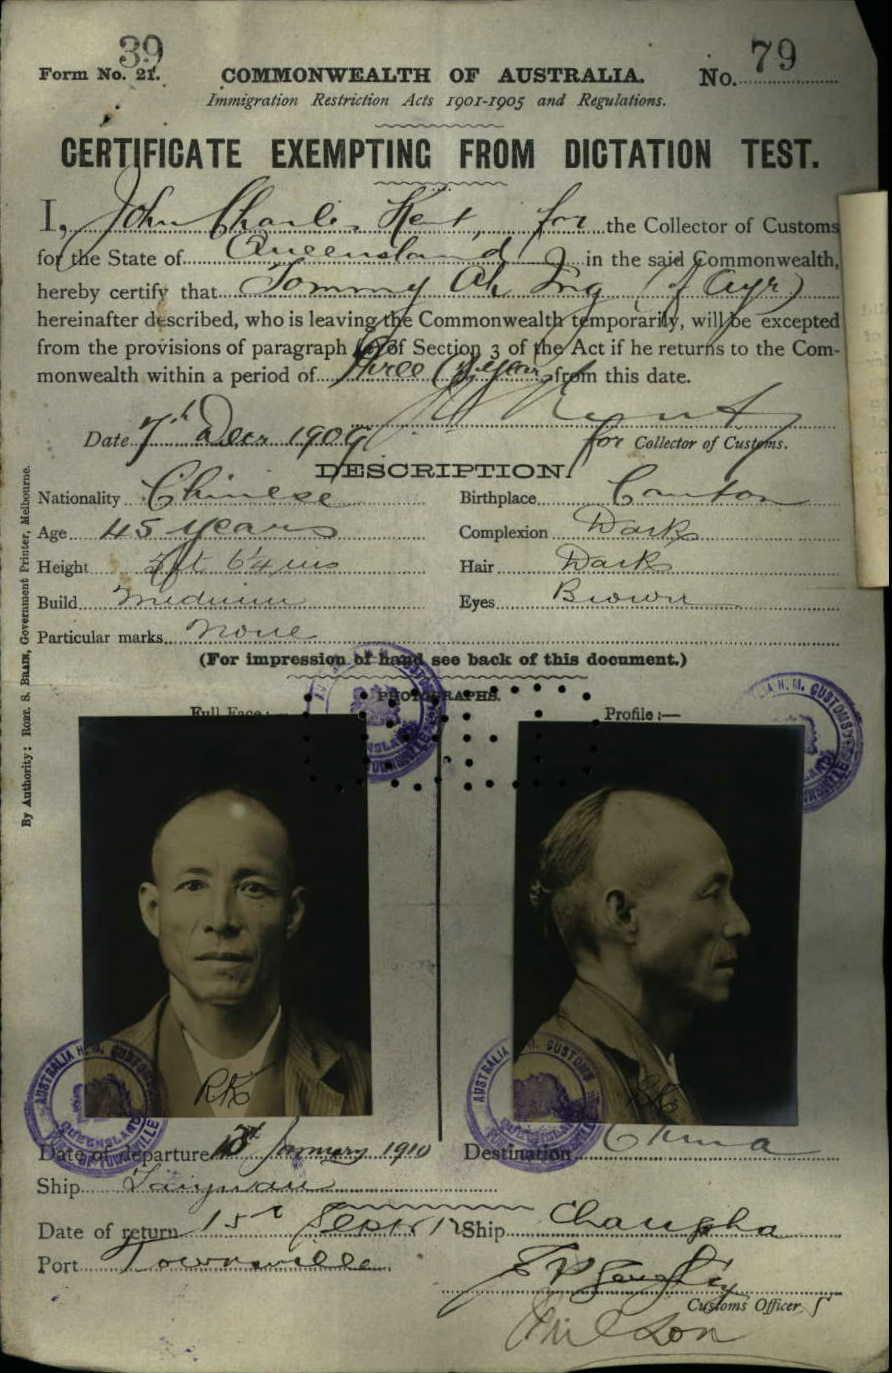 39
Form No. 21. COMMONWEALTH OF AUSTRALIA. No. 79
Immigration Restriction Acts 1901-1905 and Regulations.
CERTIFICATE EXEMPTING FROM DICTATION TEST.
I, John Charles Kent, for the Collector of Customs
for the State of Queensland in the said Commonwealth,
hereby certify that Tommy Ah Ing (of Ayr)
hereinafter described, who is leaving the Commonwealth temporarily, will be excepted
from the provisions of paragraph (a) of Section 3 of the Act if he returns to the Com-
monwealth within a period of three (3) years from this date.
Date 7th Decr 1909 for Collector of Customs.
DESCRIPTION.
Nationality Chinese Birthplace Canton
Age 45 years Complexion Dark
Height 5ft 6¼ ins Hair Dark
Build Medium Eyes Brown
Particular marks None
(For impression of hand see back of this document.)
PHOTOGRAPHS.
Full Face:— Profile:—
By Authority: ROBT. S. BRAIN, Government Printer, Melbourne.
AUSTRALIA H.M. CUSTOMS QUEENSLAND TOWNSVILLE
RK
AUSTRALIA H.M. CUSTOMS
Date of departure January 1910 Destination China
Ship Taiyuan
Date of return 15th Septr 12 Ship Changsha
Port Townsville
Customs Officer